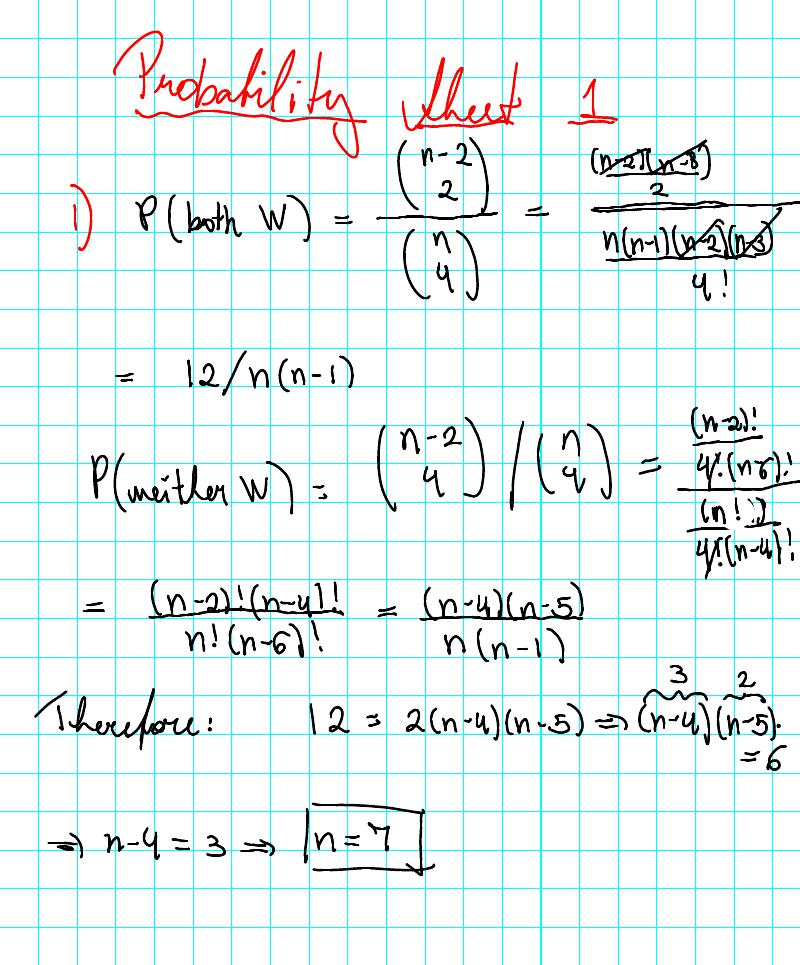 Probability sheet 1
1) P(both W) = \frac{\binom{n-2}{2}}{\binom{n}{4}} = \frac{\frac{(n-2)(n-3)}{2}}{\frac{n(n-1)(n-2)(n-3)}{4!}}
= 12/n(n-1)
P(neither W) = \binom{n-2}{4} / \binom{n}{4} = \frac{\frac{(n-2)!}{4!·(n-6)!}}{\frac{(n!)}{4!(n-4)!}}
= \frac{(n-2)!(n-4)!}{n!(n-6)!} = \frac{(n-4)(n-5)}{n(n-1)}
Therefore: 12 = 2(n-4)(n-5) ⇒ \overbrace{(n-4)}^{3}\overbrace{(n-5)}^{2}.
= 6
⇒ n-4 = 3 ⇒ n = 7